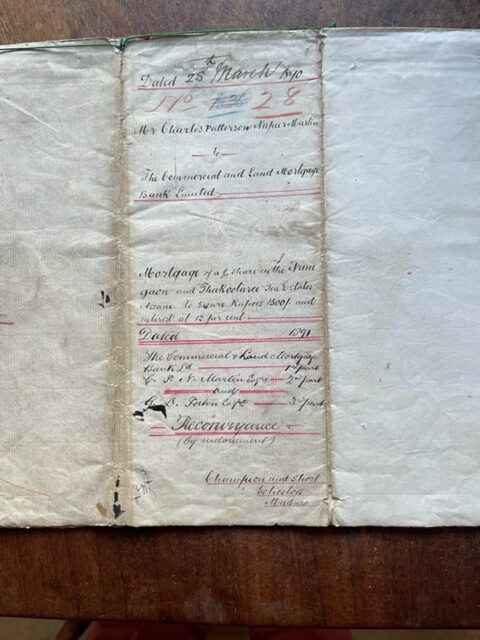 Dated 25th March 1890
No 28
Mr Charles Patterson Napier Martin
to
The Commercial and Land Mortgage
Bank Limited
Mortgage of a share in the
and Thakoolarie Tea Estates
Assam to secure Rupees 1500/- and
interest at 12 per cent
Dated 1891
The Commercial & Land Mortgage
Bank Ld 1st part
C. P. N. Martin Esqre 2nd part
and
G. Esqre 3rd part
Reconveyance
(by indorsement)
Champion and Short
Solicitors
Madras